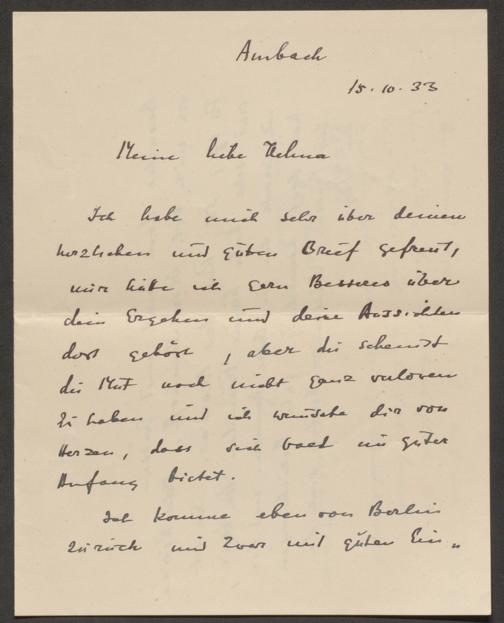 Ambach
15.10.33
Meine liebe Helma
Ich habe mich sehr über deinen
herzlichen und guten Brief gefreut,
nur hätte ich gern Besseres über
dein Ergehen und deine Aussichten
dort gehört, aber du scheinst
den Mut noch nicht ganz verloren
zu haben und ich wünsche dir von
Herzen, dass sich bald ein guter
Anfang bietet.
Ich komme eben von Berlin
zurück und zwar mit guten Ein„